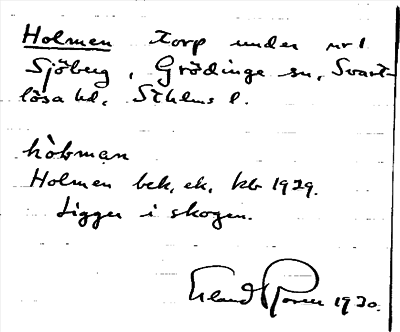 Holmen torp under nr 1
Sjöberg, Grödinge sn, Svart-
lösa hd, Sthlms l.
hòlman
Holmen bek. ek. kb 1929.
Ligger i skogen.
Erland Rosell 1930.